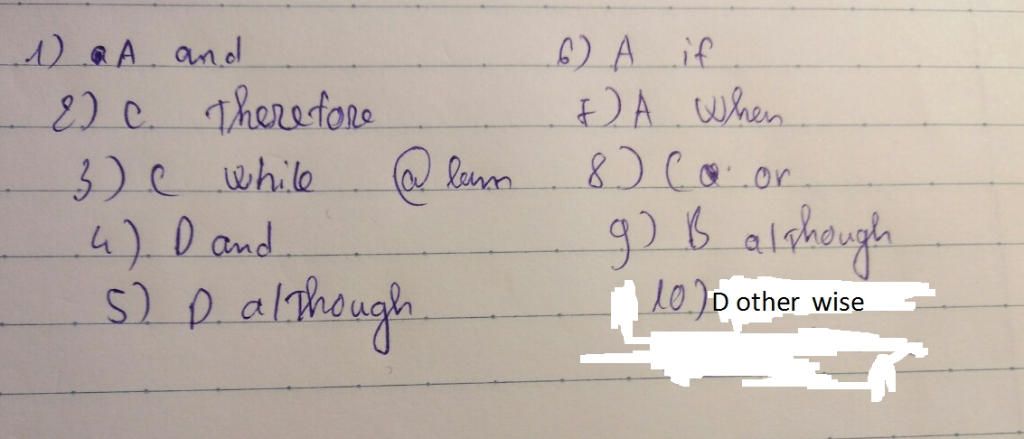 1) A and
2) C. Therefore
3) C while @ lam
4). D and
5) D although
6) A if
7) A When
8) C or
9) B although
10.) D other wise